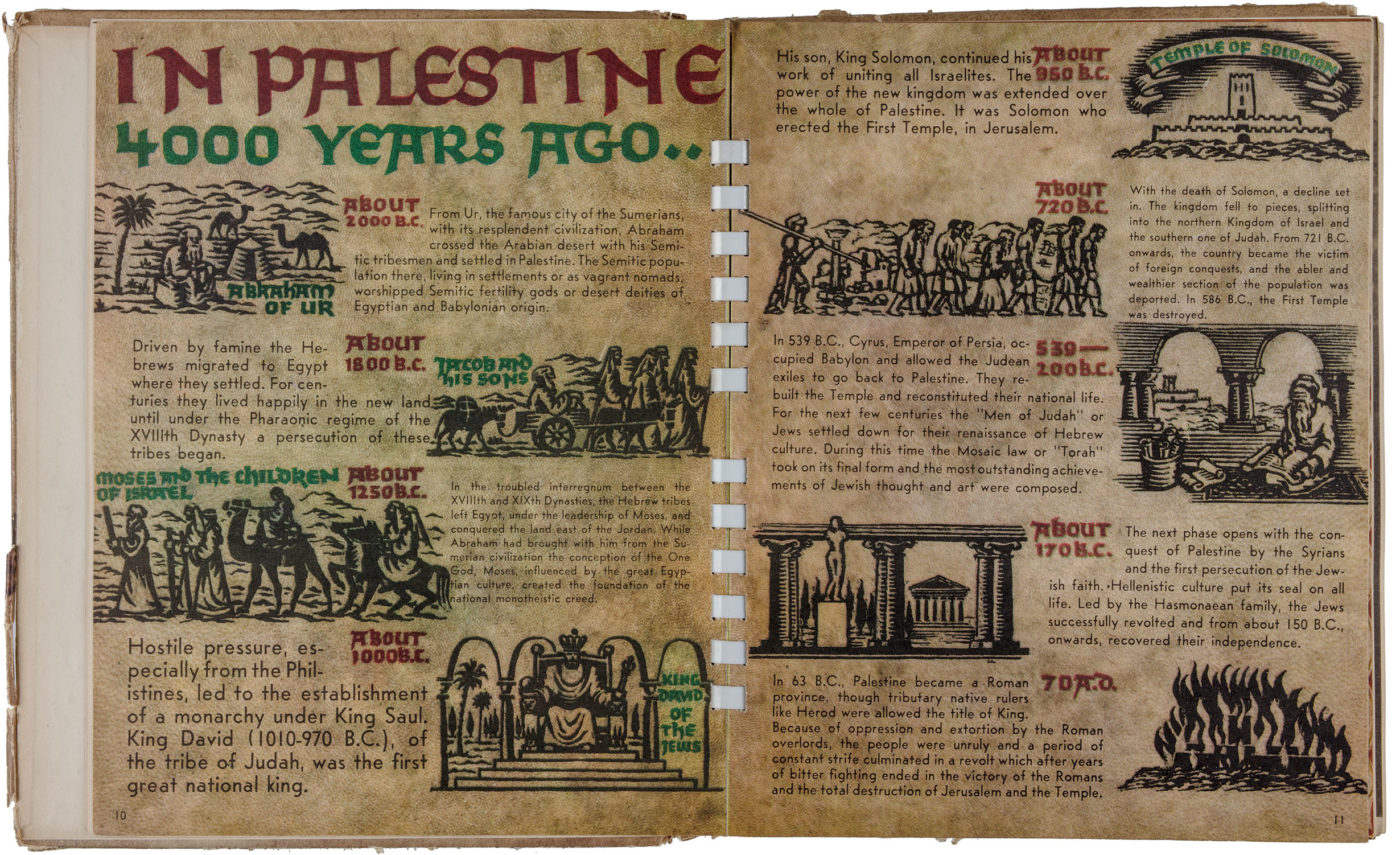 IN PALESTINE
4000 YEARS AGO..
ABOUT
2000 B.C.
From Ur, the famous city of the Sumerians,
with its resplendent civilization, Abraham
crossed the Arabian desert with his Semi-
tic tribesmen and settled in Palestine. The Semitic popu-
lation there, living in settlements or as vagrant nomads,
worshipped Semitic fertility gods or desert deities of
Egyptian and Babylonian origin.
ABRAHAM
OF UR
Driven by famine the He-
brews migrated to Egypt
where they settled. For cen-
turies they lived happily in the new land
until under the Pharaonic regime of the
XVIIIth Dynasty a persecution of these
tribes began.
ABOUT
1800 B.C.
JACOB AND
HIS SONS
MOSES AND THE CHILDREN
OF ISRAEL
ABOUT
1250 B.C.
In the troubled interregnum between the
XVIIIth and XIXth Dynasties, the Hebrew tribes
left Egypt, under the leadership of Moses, and
conquered the land east of the Jordan. While
Abraham had brought with him from the Su-
merian civilization the conception of the One
God, Moses, influenced by the great Egyp-
tian culture, created the foundation of the
national monotheistic creed.
Hostile pressure, es-
pecially from the Phil-
istines, led to the establishment
of a monarchy under King Saul.
King David (1010-970 B.C.), of
the tribe of Judah, was the first
great national king.
ABOUT
1000 B.C.
KING
DAVID
OF
THE
JEWS
10
His son, King Solomon, continued his
work of uniting all Israelites. The
power of the new kingdom was extended over
the whole of Palestine. It was Solomon who
erected the First Temple, in Jerusalem.
ABOUT
950 B.C.
TEMPLE OF SOLOMON
ABOUT
720 B.C.
With the death of Solomon, a decline set
in. The kingdom fell to pieces, splitting
into the northern Kingdom of Israel and
the southern one of Judah. From 721 B.C.
onwards, the country became the victim
of foreign conquests, and the abler and
wealthier section of the population was
deported. In 586 B.C., the First Temple
was destroyed.
In 539 B.C., Cyrus, Emperor of Persia, oc-
cupied Babylon and allowed the Judean
exiles to go back to Palestine. They re-
built the Temple and reconstituted their national life.
For the next few centuries the "Men of Judah" or
Jews settled down for their renaissance of Hebrew
culture. During this time the Mosaic law or "Torah"
took on its final form and the most outstanding achieve-
ments of Jewish thought and art were composed.
539—
200 B.C.
ABOUT
170 B.C.
The next phase opens with the con-
quest of Palestine by the Syrians
and the first persecution of the Jew-
ish faith. Hellenistic culture put its seal on all
life. Led by the Hasmonaean family, the Jews
successfully revolted and from about 150 B.C.,
onwards, recovered their independence.
In 63 B.C., Palestine became a Roman
province, though tributary native rulers
like Herod were allowed the title of King.
Because of oppression and extortion by the Roman
overlords, the people were unruly and a period of
constant strife culminated in a revolt which after years
of bitter fighting ended in the victory of the Romans
and the total destruction of Jerusalem and the Temple,
70 A.D.
11